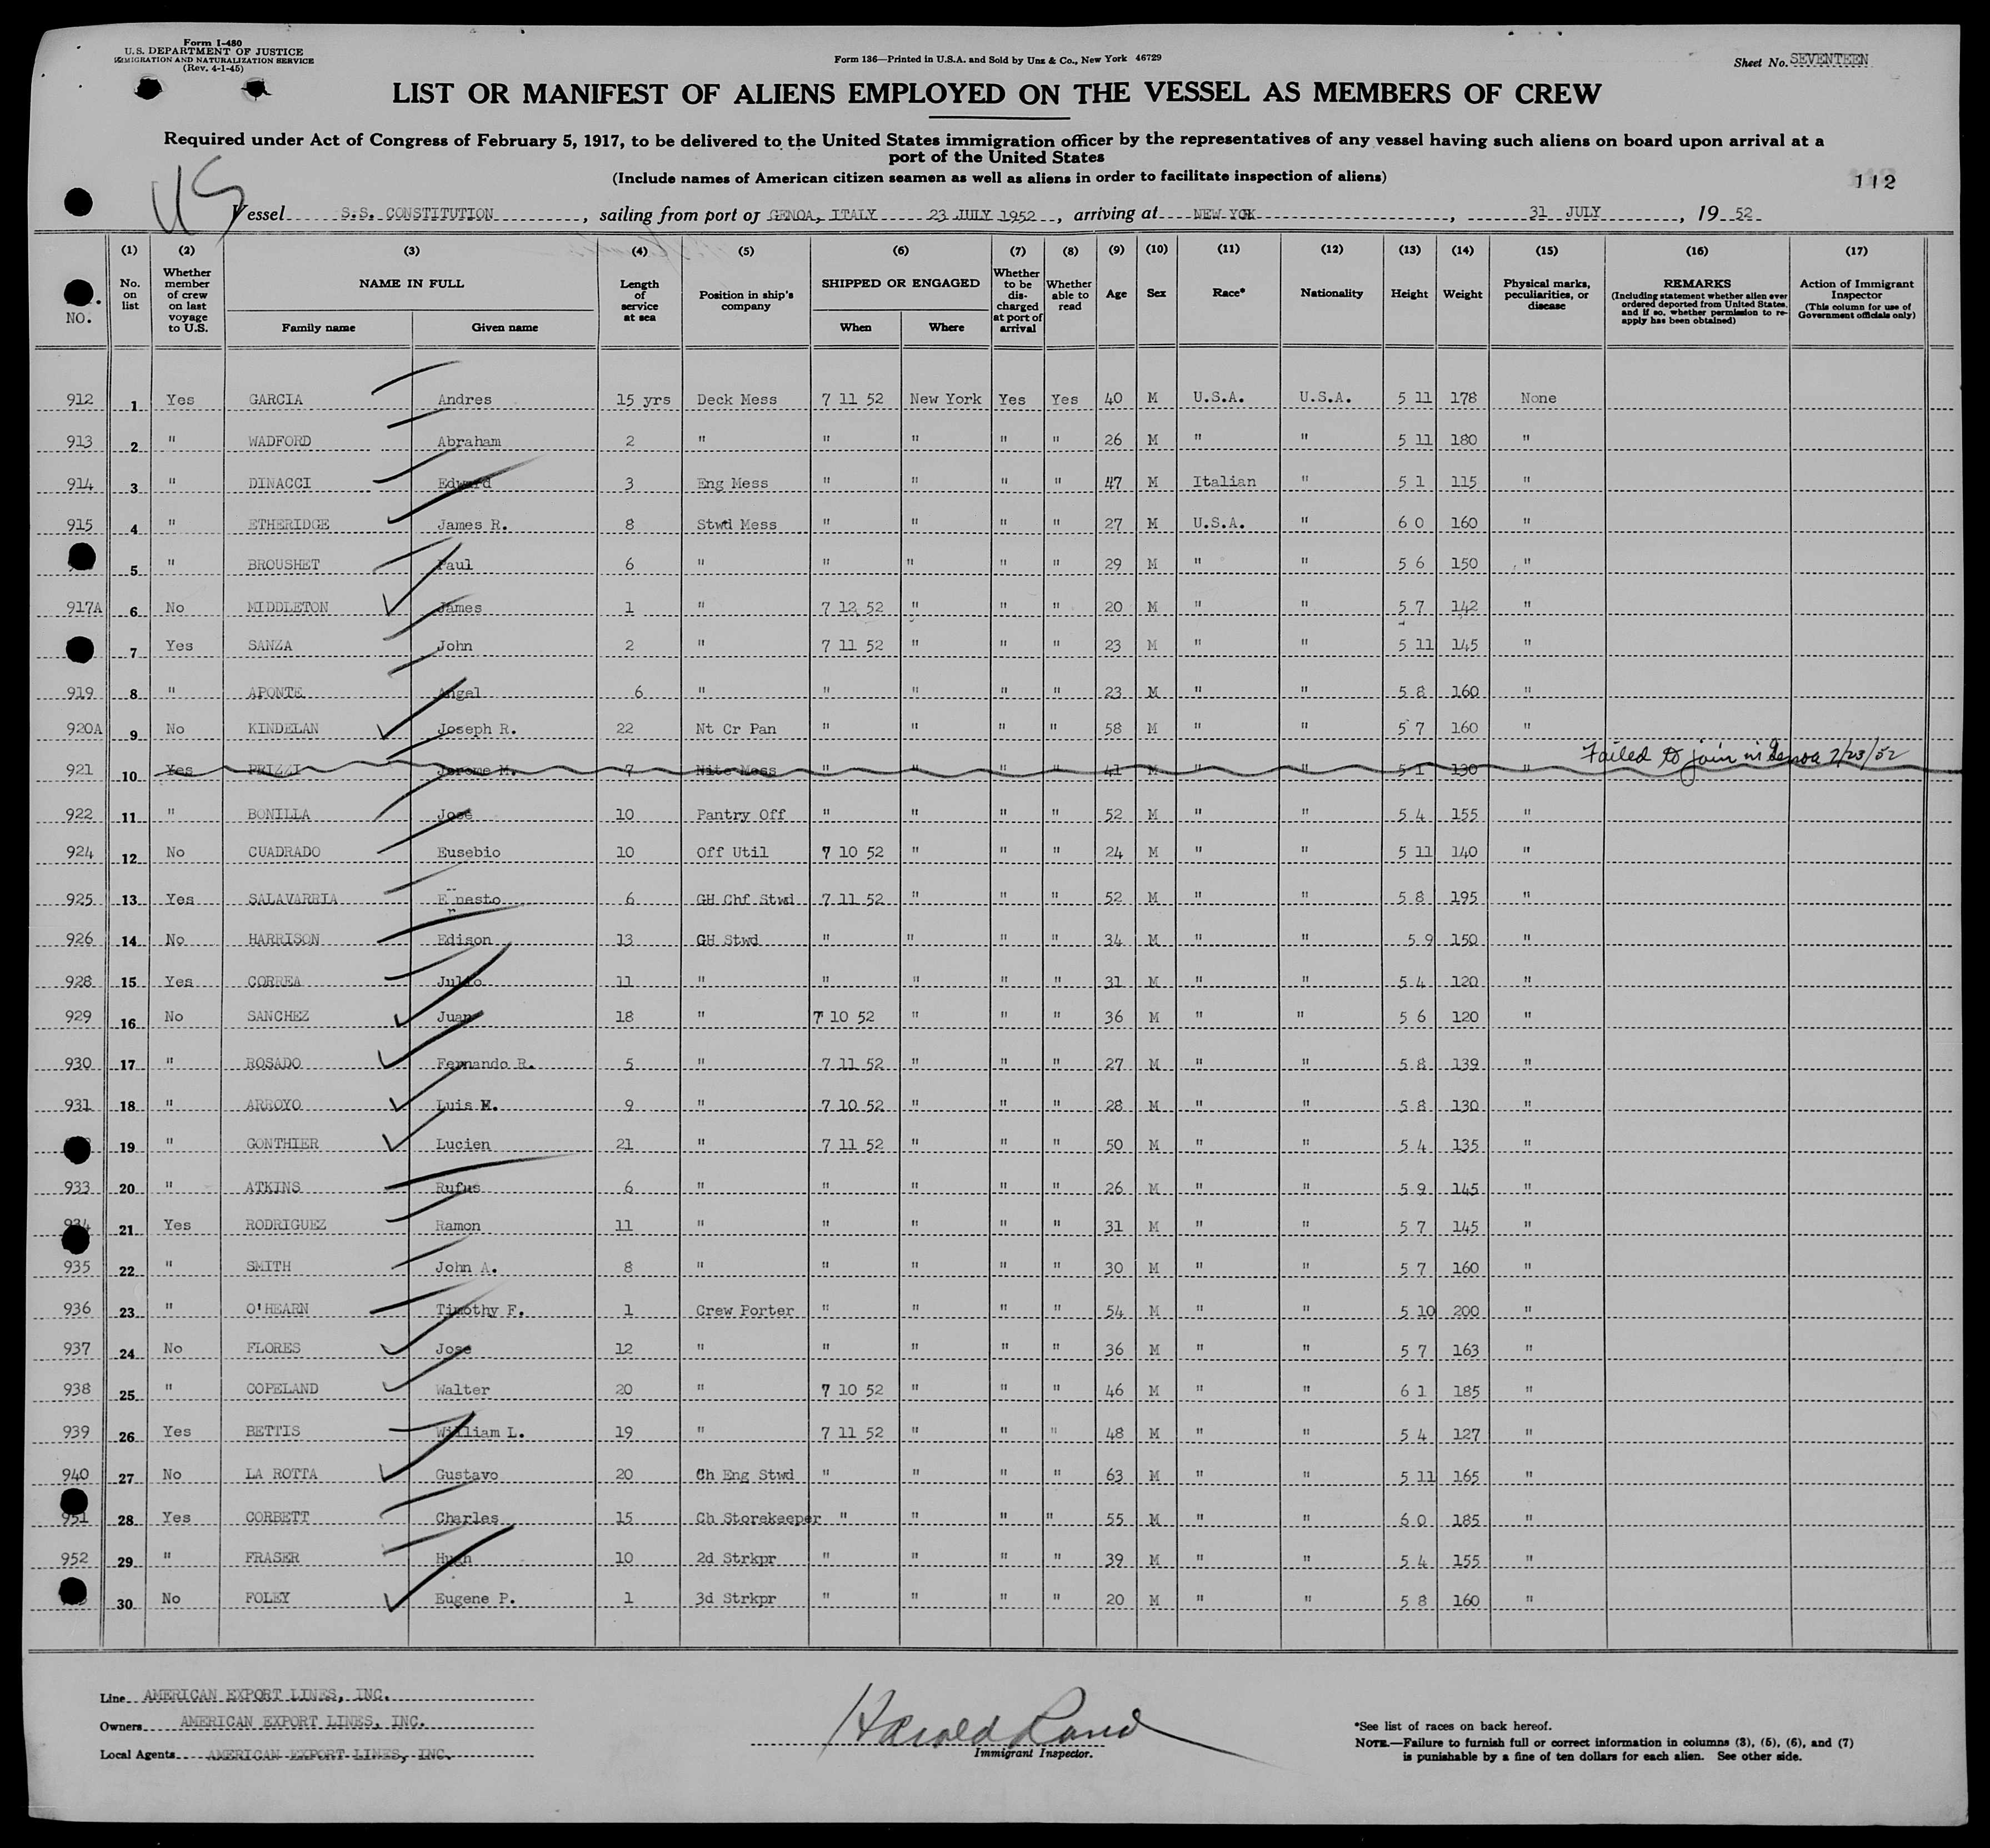 Form I-480
U. S. DEPARTMENT OF JUSTICE
IMMIGRATION AND NATURALIZATION SERVICE
(Rev. 4-1-45)
Form 136—Printed in U.S.A. and Sold by Unz & Co., New York 46729
Sheet No. SEVENTEEN
LIST OR MANIFEST OF ALIENS EMPLOYED ON THE VESSEL AS MEMBERS OF CREW
Required under Act of Congress of February 5, 1917, to be delivered to the United States immigration officer by the representatives of any vessel having such aliens on board upon arrival at a
port of the United States
(Include names of American citizen seamen as well as aliens in order to facilitate inspection of aliens)
112
US
Vessel S.S. CONSTITUTION, sailing from port of GENOA, ITALY 23 JULY 1952, arriving at NEW YORK, 31 JULY, 19 52
(1) (2) (3) (4) (5) (6) (7) (8) (9) (10) (11) (12) (13) (14) (15) (16) (17)
NO. No. on list Whether member of crew on last voyage to U.S. NAME IN FULL Family name Given name Length of service at sea Position in ship's company SHIPPED OR ENGAGED When Where Whether to be discharged at port of arrival Whether able to read Age Sex Race* Nationality Height Weight Physical marks, peculiarities, or disease REMARKS (Including statement whether alien ever ordered deported from United States, and if so, whether permission to re-apply has been obtained) Action of Immigrant Inspector (This column for use of Government officials only)
912 1 Yes GARCIA Andres 15 yrs Deck Mess 7 11 52 New York Yes Yes 40 M U.S.A. U.S.A. 5 11 178 None
913 2 " WADFORD Abraham 2 " " " " " 26 M " " 5 11 180 "
914 3 " DINACCI Edward 3 Eng Mess " " " " 47 M Italian " 5 1 115 "
915 4 " ETHERIDGE James R. 8 Stwd Mess " " " " 27 M U.S.A. " 6 0 160 "
5 " BROUSHET Paul 6 " " " " " 29 M " " 5 6 150 "
917A 6 No MIDDLETON James 1 " 7 12 52 " " " 20 M " " 5 7 142 "
7 Yes SANZA John 2 " 7 11 52 " " " 23 M " " 5 11 145 "
919 8 " APONTE Angel 6 " " " " " 23 M " " 5 8 160 "
920A 9 No KINDELAN Joseph R. 22 Nt Cr Pan " " " " 58 M " " 5 7 160 "
921 10 Yes PRIZZI Jerome M. 7 Nite Mess " " " " 41 M " " 5 1 130 " Failed to join in Genoa 7/23/52
922 11 " BONILLA Jose 10 Pantry Off " " " " 52 M " " 5 4 155 "
924 12 No CUADRADO Eusebio 10 Off Util 7 10 52 " " " 24 M " " 5 11 140 "
925 13 Yes SALAVARRIA Ernesto 6 GH Chf Stwd 7 11 52 " " " 52 M " " 5 8 195 "
926 14 No HARRISON Edison 13 GH Stwd " " " " 34 M " " 5 9 150 "
928 15 Yes CORREA Julio 11 " " " " " 31 M " " 5 4 120 "
929 16 No SANCHEZ Juan 18 " 7 10 52 " " " 36 M " " 5 6 120 "
930 17 " ROSADO Fernando R. 5 " 7 11 52 " " " 27 M " " 5 8 139 "
931 18 " ARROYO Luis E. 9 " 7 10 52 " " " 28 M " " 5 8 130 "
19 " GONTHIER Lucien 21 " 7 11 52 " " " 50 M " " 5 4 135 "
933 20 " ATKINS Rufus 6 " " " " " 26 M " " 5 9 145 "
934 21 Yes RODRIGUEZ Ramon 11 " " " " " 31 M " " 5 7 145 "
935 22 " SMITH John A. 8 " " " " " 30 M " " 5 7 160 "
936 23 " O'HEARN Timothy F. 1 Crew Porter " " " " 54 M " " 5 10 200 "
937 24 No FLORES Jose 12 " " " " " 36 M " " 5 7 163 "
938 25 " COPELAND Walter 20 " 7 10 52 " " " 46 M " " 6 1 185 "
939 26 Yes BETTIS William L. 19 " 7 11 52 " " " 48 M " " 5 4 127 "
940 27 No LA ROTTA Gustavo 20 Ch Eng Stwd " " " " 63 M " " 5 11 165 "
951 28 Yes CORBETT Charles 15 Ch Storekeeper " " " " 55 M " " 6 0 185 "
952 29 " FRASER Hugh 10 2d Strkpr " " " " 39 M " " 5 4 155 "
30 No FOLEY Eugene P. 1 3d Strkpr " " " " 20 M " " 5 8 160 "
Line AMERICAN EXPORT LINES, INC.
Owners AMERICAN EXPORT LINES, INC.
Local Agents AMERICAN EXPORT LINES, INC.
Harold Rand
Immigrant Inspector.
*See list of races on back hereof.
NOTE.—Failure to furnish full or correct information in columns (3), (5), (6), and (7)
is punishable by a fine of ten dollars for each alien. See other side.